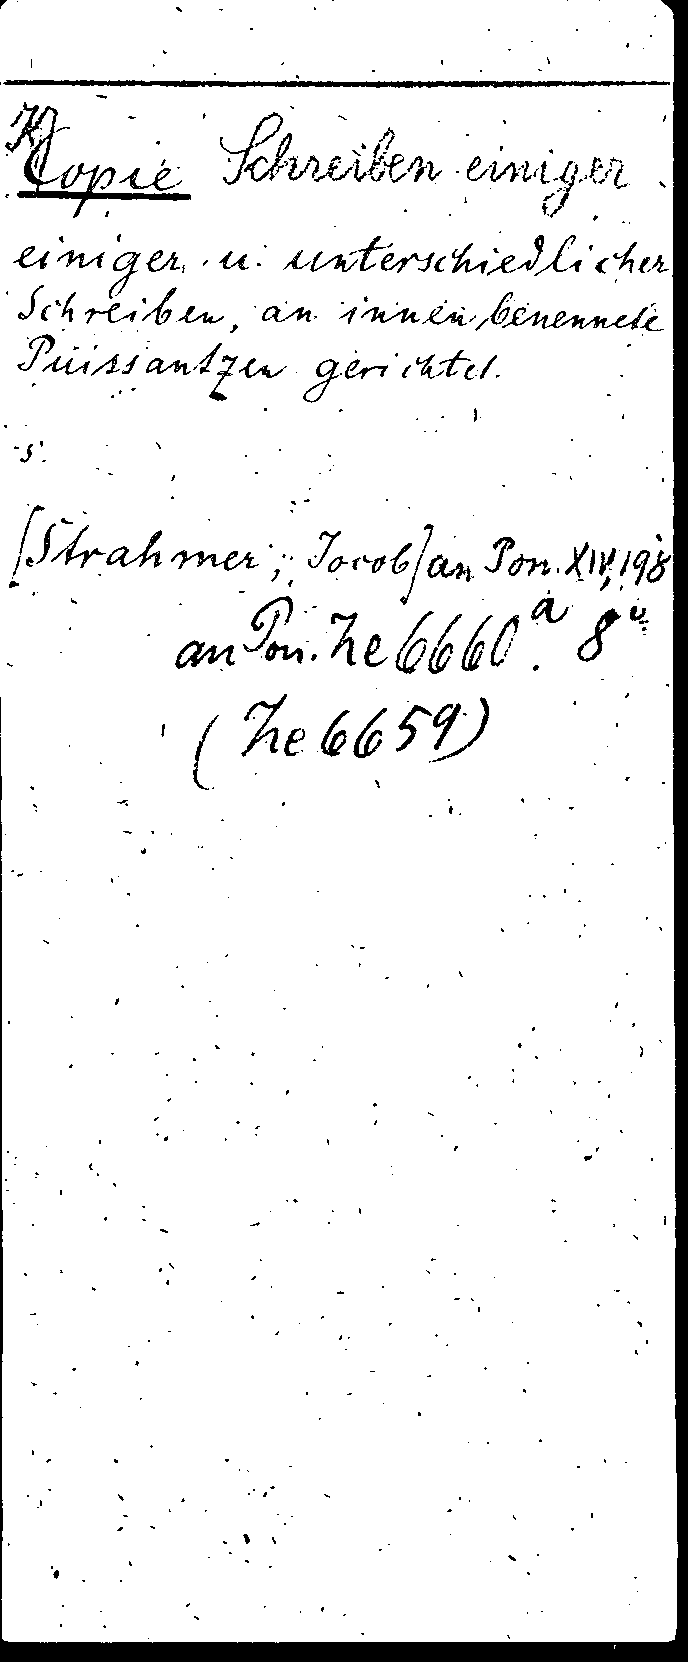 K
Copie Schreiben einiger
einiger u. unterschiedlicher
Schreiben, an innen benennete
Puissantzen gerichtet.
s.
[Strahmer, Jacob] an Pon. XIV, 198
an Pon. Ze 6660 a. 8°
(Ze 6659)